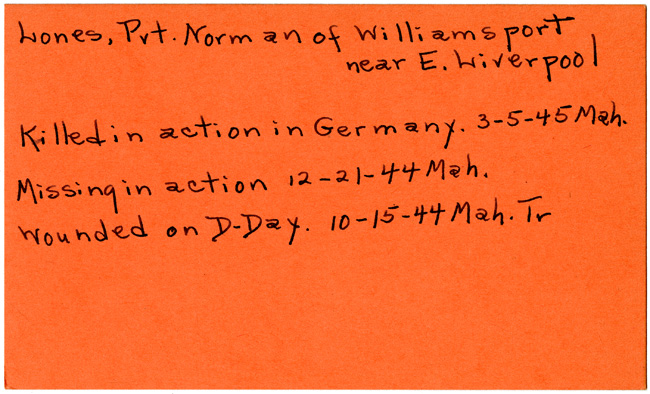 Lones, Pvt. Norman of Williamsport
near E. Liverpool
Killed in action in Germany. 3-5-45 Mah.
Missing in action 12-21-44 Mah.
Wounded on D-Day. 10-15-44 Mah. Tr